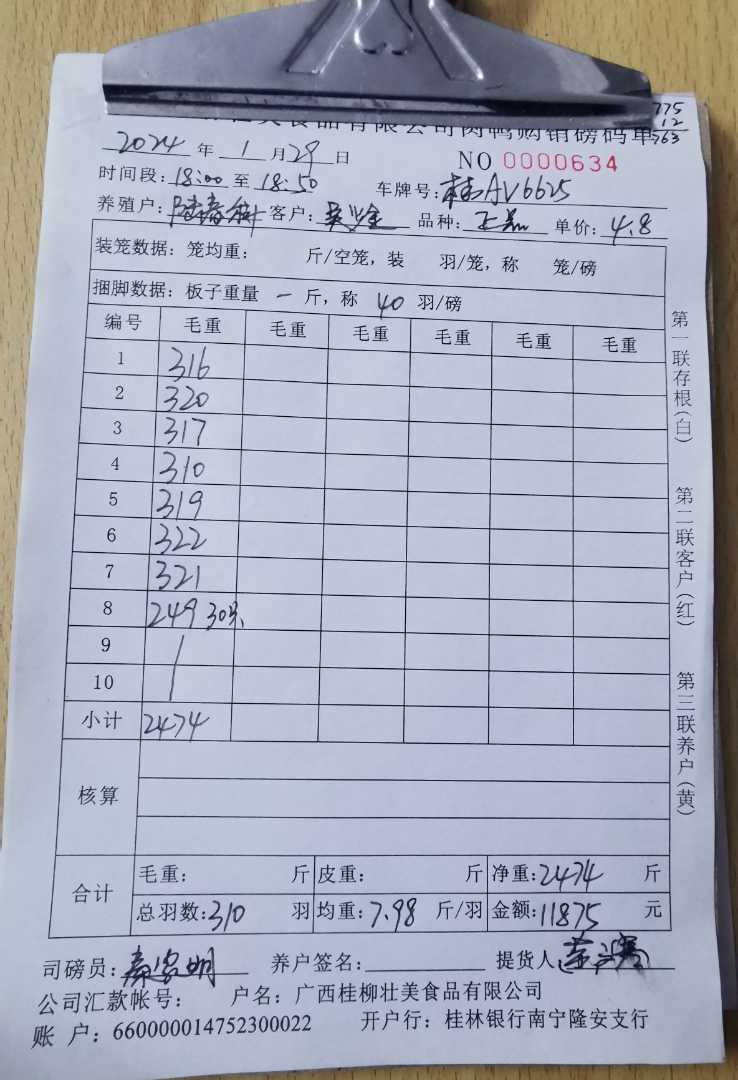 美食品有限公司肉鸭购销磅码单
775
12
763
2024 年 1 月 29 日 NO 0000634
时间段: 18:00 至 18:50 车牌号: 桂AV6625
养殖户: 客户: 品种: 单价: 4.8
装笼数据: 笼均重: 斤/空笼, 装 羽/笼, 称 笼/磅
捆脚数据: 板子重量 一 斤, 称 40 羽/磅
编号 毛重 毛重 毛重 毛重 毛重 毛重
1 316
2 320
3 317
4 310
5 319
6 322
7 321
8 249 30只
9
10
小计 2474
核算
合计 毛重: 斤 皮重: 斤 净重: 2474 斤
总羽数: 310 羽 均重: 7.98 斤/羽 金额: 11875 元
司磅员: 养户签名: 提货人
公司汇款帐号: 户名: 广西桂柳壮美食品有限公司
账 户: 660000014752300022 开户行: 桂林银行南宁隆安支行
第一联存根(白) 第二联客户(红) 第三联养户(黄)